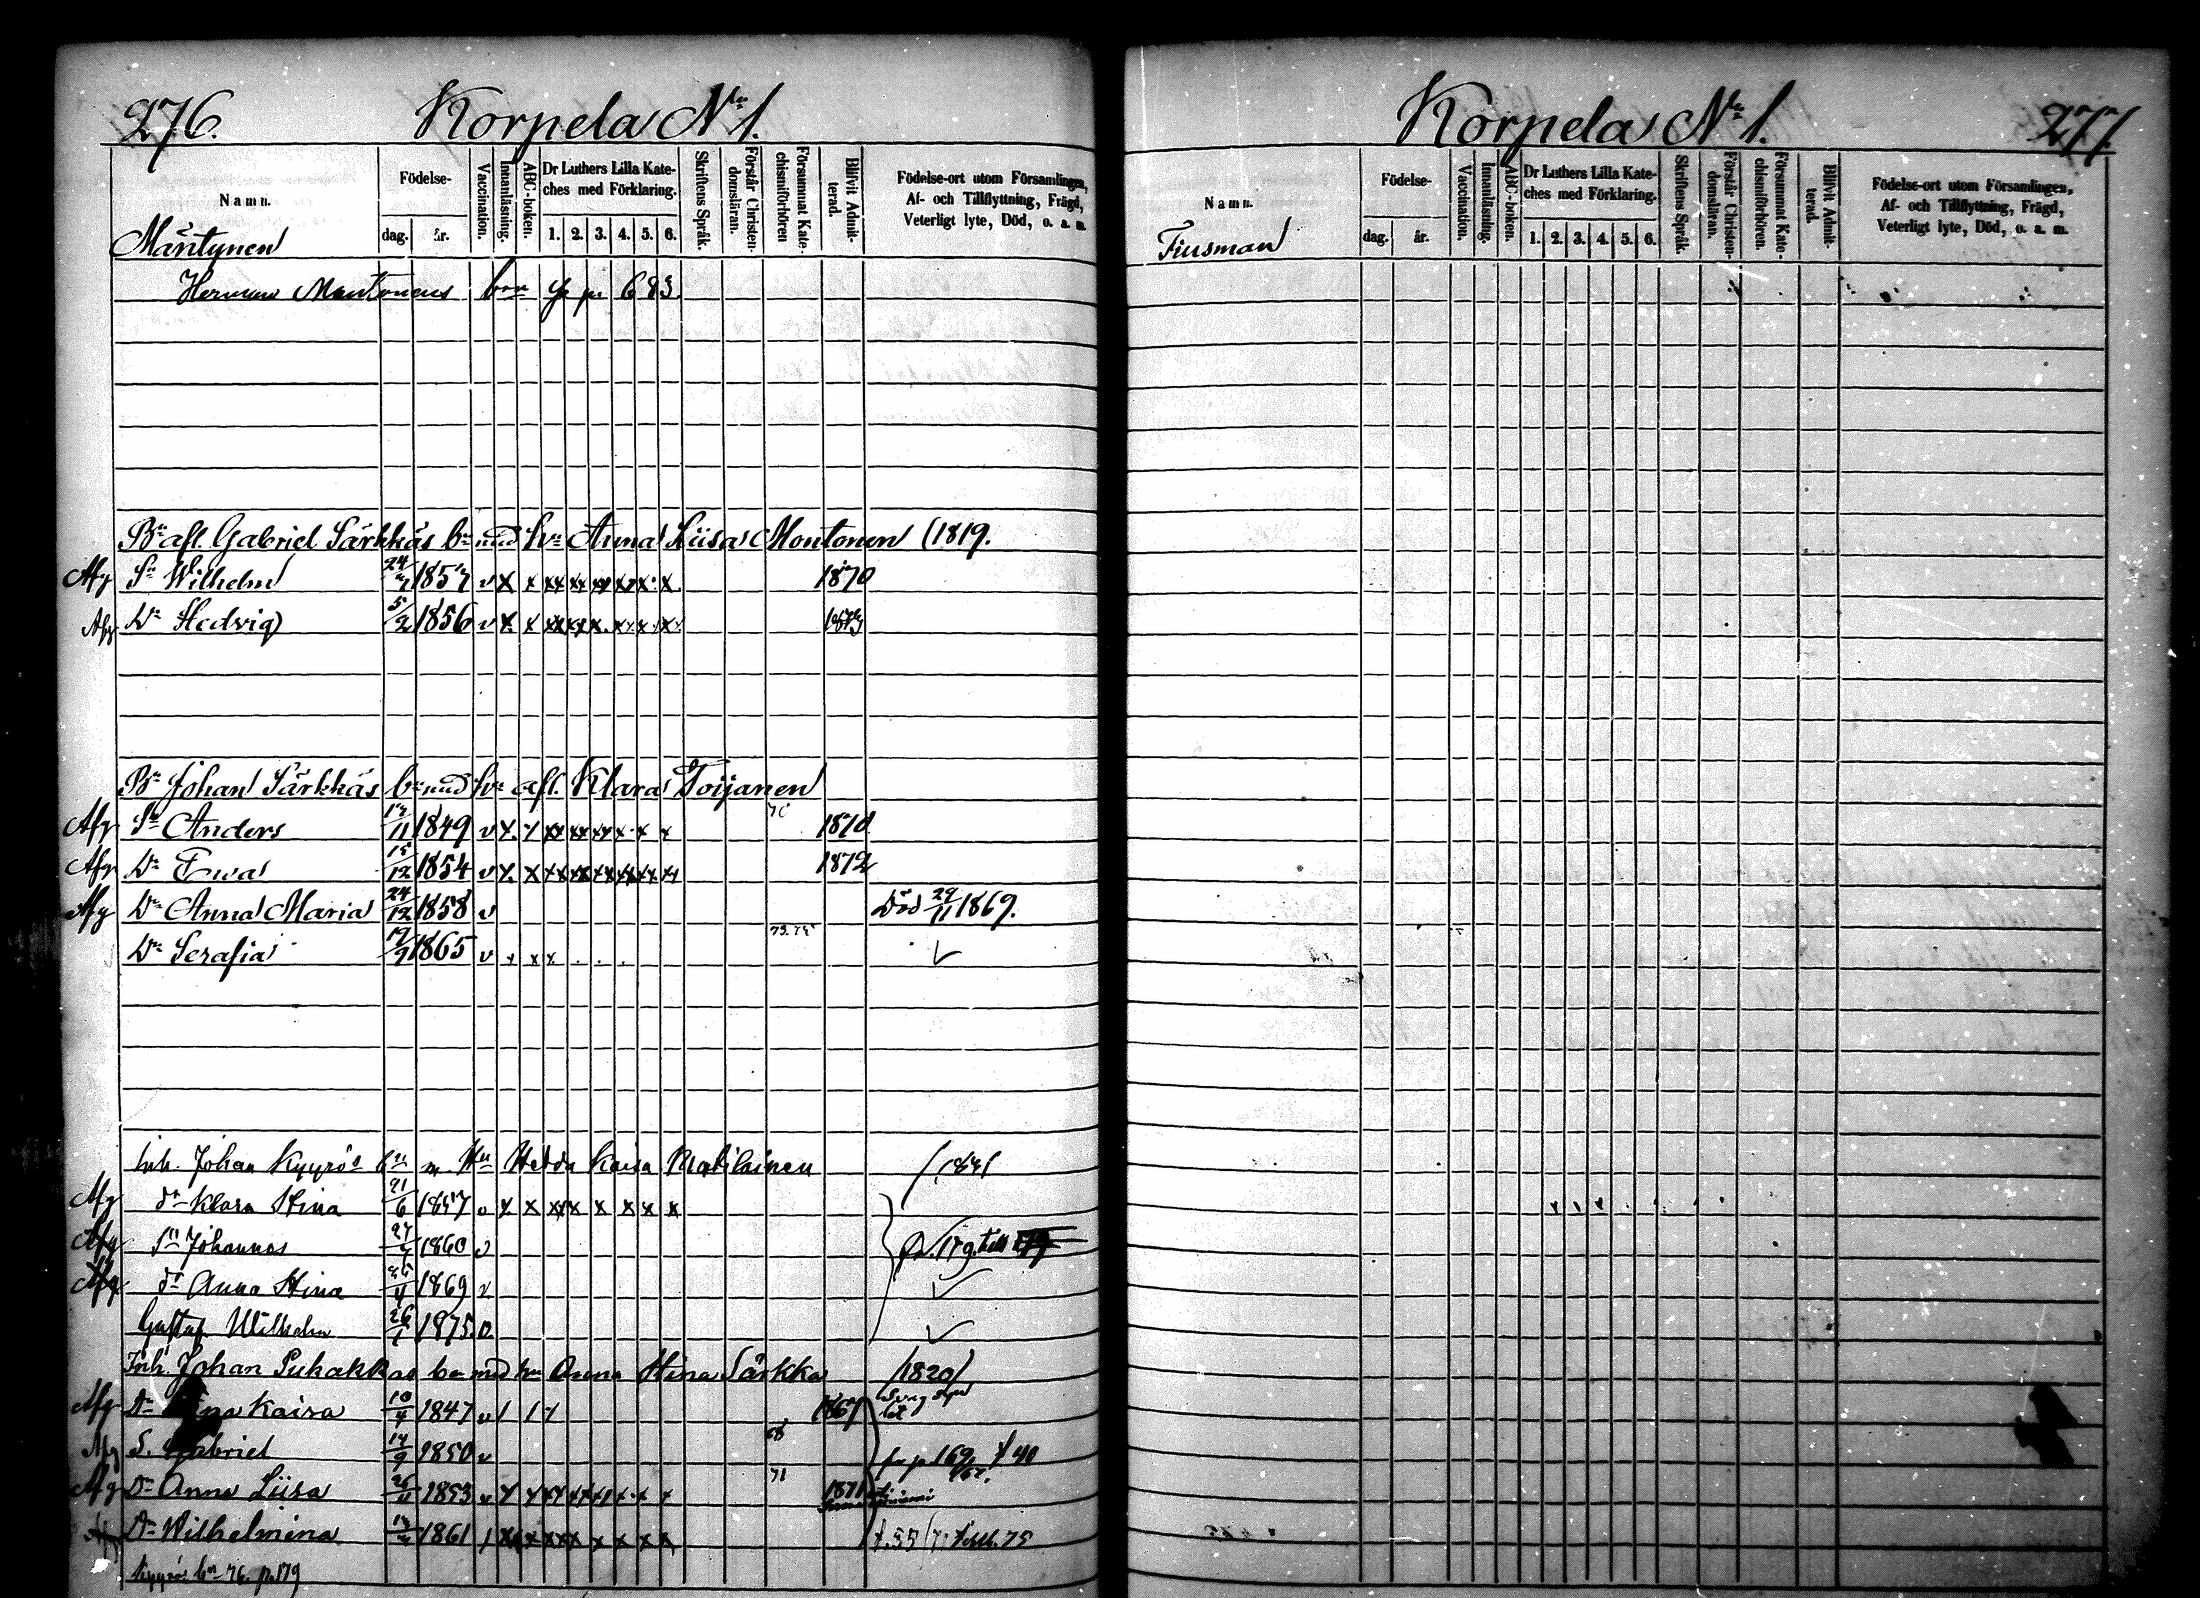 276. Korpela No 1.
Namn.
Födelse-
dag. år.
Vaccination.
Innanläsning.
ABC-boken.
Dr Luthers Lilla Kate-
ches med Förklaring.
1. 2. 3. 4. 5. 6.
Skriftens Språk.
Förstår Christen-
domsläran.
Försummat Kate-
chismiförhören
Blifvit Admit-
terad.
Födelse-ort utom Församlingen,
Af- och Tillflyttning, Frägd,
Veterligt lyte, Död, o. a. m.
Mäntynen
Herman Montonens p. 683.
Bn afl. Gabriel Särkkäs bn med hn Anna Liisa Montonen (1819.
Afg Sn Wilhelm 24/7 1857 v x x xx xx xx xx x x 1870
Afg Dr Hedvig 5/2 1856 v x x xx xx x xx x x 1873
Bn Johan Särkkäs bn med hn afl. Klara Toijanen
Afg Sn Anders 1849 v x x xx xx xx x x x 1870
Afg Dr Ewa 15/12 1854 v x x xx xx xx xx xx x 1872
Afg Dr Anna Maria 24/12 1858 v Död 29/11 1869.
Dr Serafia 17/9 1865 v x x x 73. 75
Inh. Johan Kyyrös bn m. Hn Hedda Kaisa Matilainen
Afg dr Klara Stina 21/6 1857 v x x xx x x x x x
Afg sn Johannes 27 1860 v
Afg dr Anna Stina 1869 v
Gustaf Wilhelm 26/1 1875 v
Inh. Johan Puhakkas bn med hn Anna Stina Särkkä (1820)
Afg Dr Kaisa 10/4 1847 v 1867 Svag syn
Afg S. Gabriel 14/9 1850 v 68 p 169
Afg Dr Anna Liisa 26/11 1853 v x x xx xx xx x x x 71 1871
Dr Wilhelmina 1861 x x x xx x x x x
Kyyrös bn 76. p. 179
Korpela No 1. 277.
Namn.
Födelse-
dag. år.
Vaccination.
Innanläsning.
ABC-boken.
Dr Luthers Lilla Kate-
ches med Förklaring.
1. 2. 3. 4. 5. 6.
Skriftens Språk.
Förstår Christen-
domsläran.
Försummat Kate-
chismiförhören.
Blifvit Admit-
terad.
Födelse-ort utom Församlingen,
Af- och Tillflyttning, Frägd,
Veterligt lyte, Död, o. a. m.
Tiusman